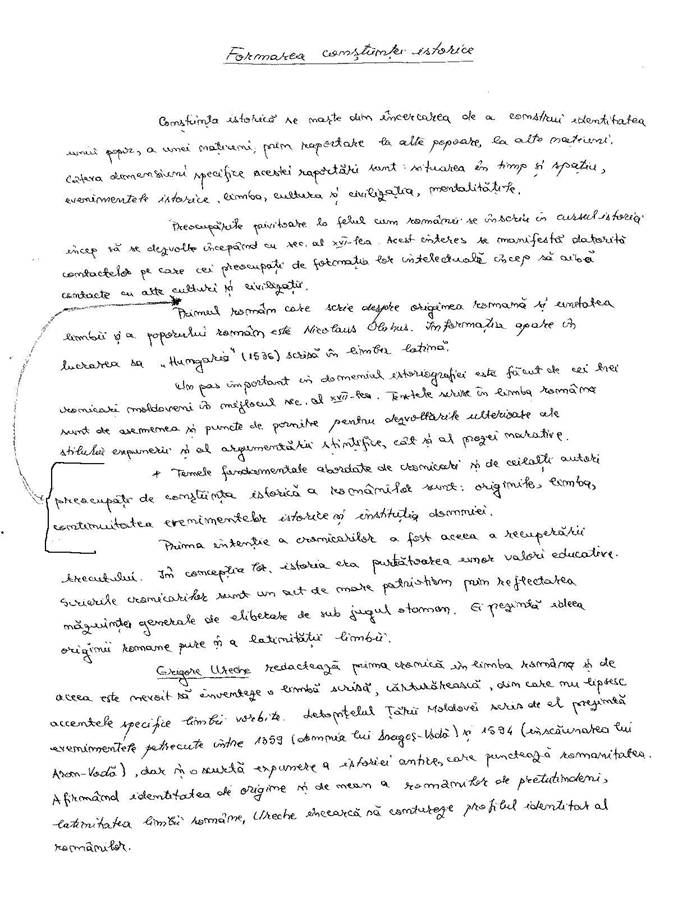 Formarea conştiinţei istorice
Conştiinţa istorică se naşte din încercarea de a construi identitatea
unui popor, a unei naţiuni, prin raportare la alte popoare, la alte naţiuni.
Câteva dimensiuni specifice acestei raportări sunt: situarea în timp şi spaţiu,
evenimentele istorice, limba, cultura şi civilizaţia, mentalităţile.
Preocupările privitoare la felul cum românii se înscriu în cursul istoriei
încep să se dezvolte începând cu sec. al XVII-lea. Acest interes se manifestă datorită
contactelor pe care cei preocupaţi de formaţia lor intelectuală încep să aibă
contacte cu alte culturi şi civilizaţii.
Primul român care scrie despre originea romană şi unitatea
limbii şi a poporului român este Nicolaus Olahus. Informaţia apare în
lucrarea sa „Hungaria" (1536) scrisă în limba latină.
Un pas important în domeniul istoriografiei este făcut de cei trei
cronicari moldoveni în mijlocul sec. al XVII-lea. Textele scrise în limba română
sunt de asemenea şi puncte de pornire pentru dezvoltările ulterioare ale
stilului expunerii şi al argumentării ştinţifice, cât şi al prozei narative.
* Temele fundamentale abordate de cronicari şi de ceilalţi autori
preocupaţi de conştiinţa istorică a românilor sunt: originile, limba,
continuitatea evenimentelor istorice şi instituţia domniei.
Prima intenţie a cronicarilor a fost aceea a recuperării
trecutului. În concepţia lor, istoria era purtătoarea unor valori educative.
Scrierile cronicarilor sunt un act de mare patriotism prin reflectarea
năzuinţei generale de eliberare de sub jugul otoman. Ei prezintă ideea
originii romane pure şi a latinităţii limbii.
Grigore Ureche redactează prima cronică în limba română şi de
aceea este nevoit să inventeze o limbă scrisă, cărturărească, din care nu lipsesc
accentele specifice limbii vorbite. Letopiseţul Ţării Moldovei scris de el prezintă
evenimentele petrecute între 1359 (domnia lui Dragoş-Vodă) şi 1594 (înscăunarea lui
Aron-Vodă), dar şi o scurtă expunere a istoriei antice, care punctează romanitatea.
Afirmând identitatea de origine şi de neam a românilor de pretutindeni,
latinitatea limbii române, Ureche încearcă să contureze profilul identitar al
românilor.